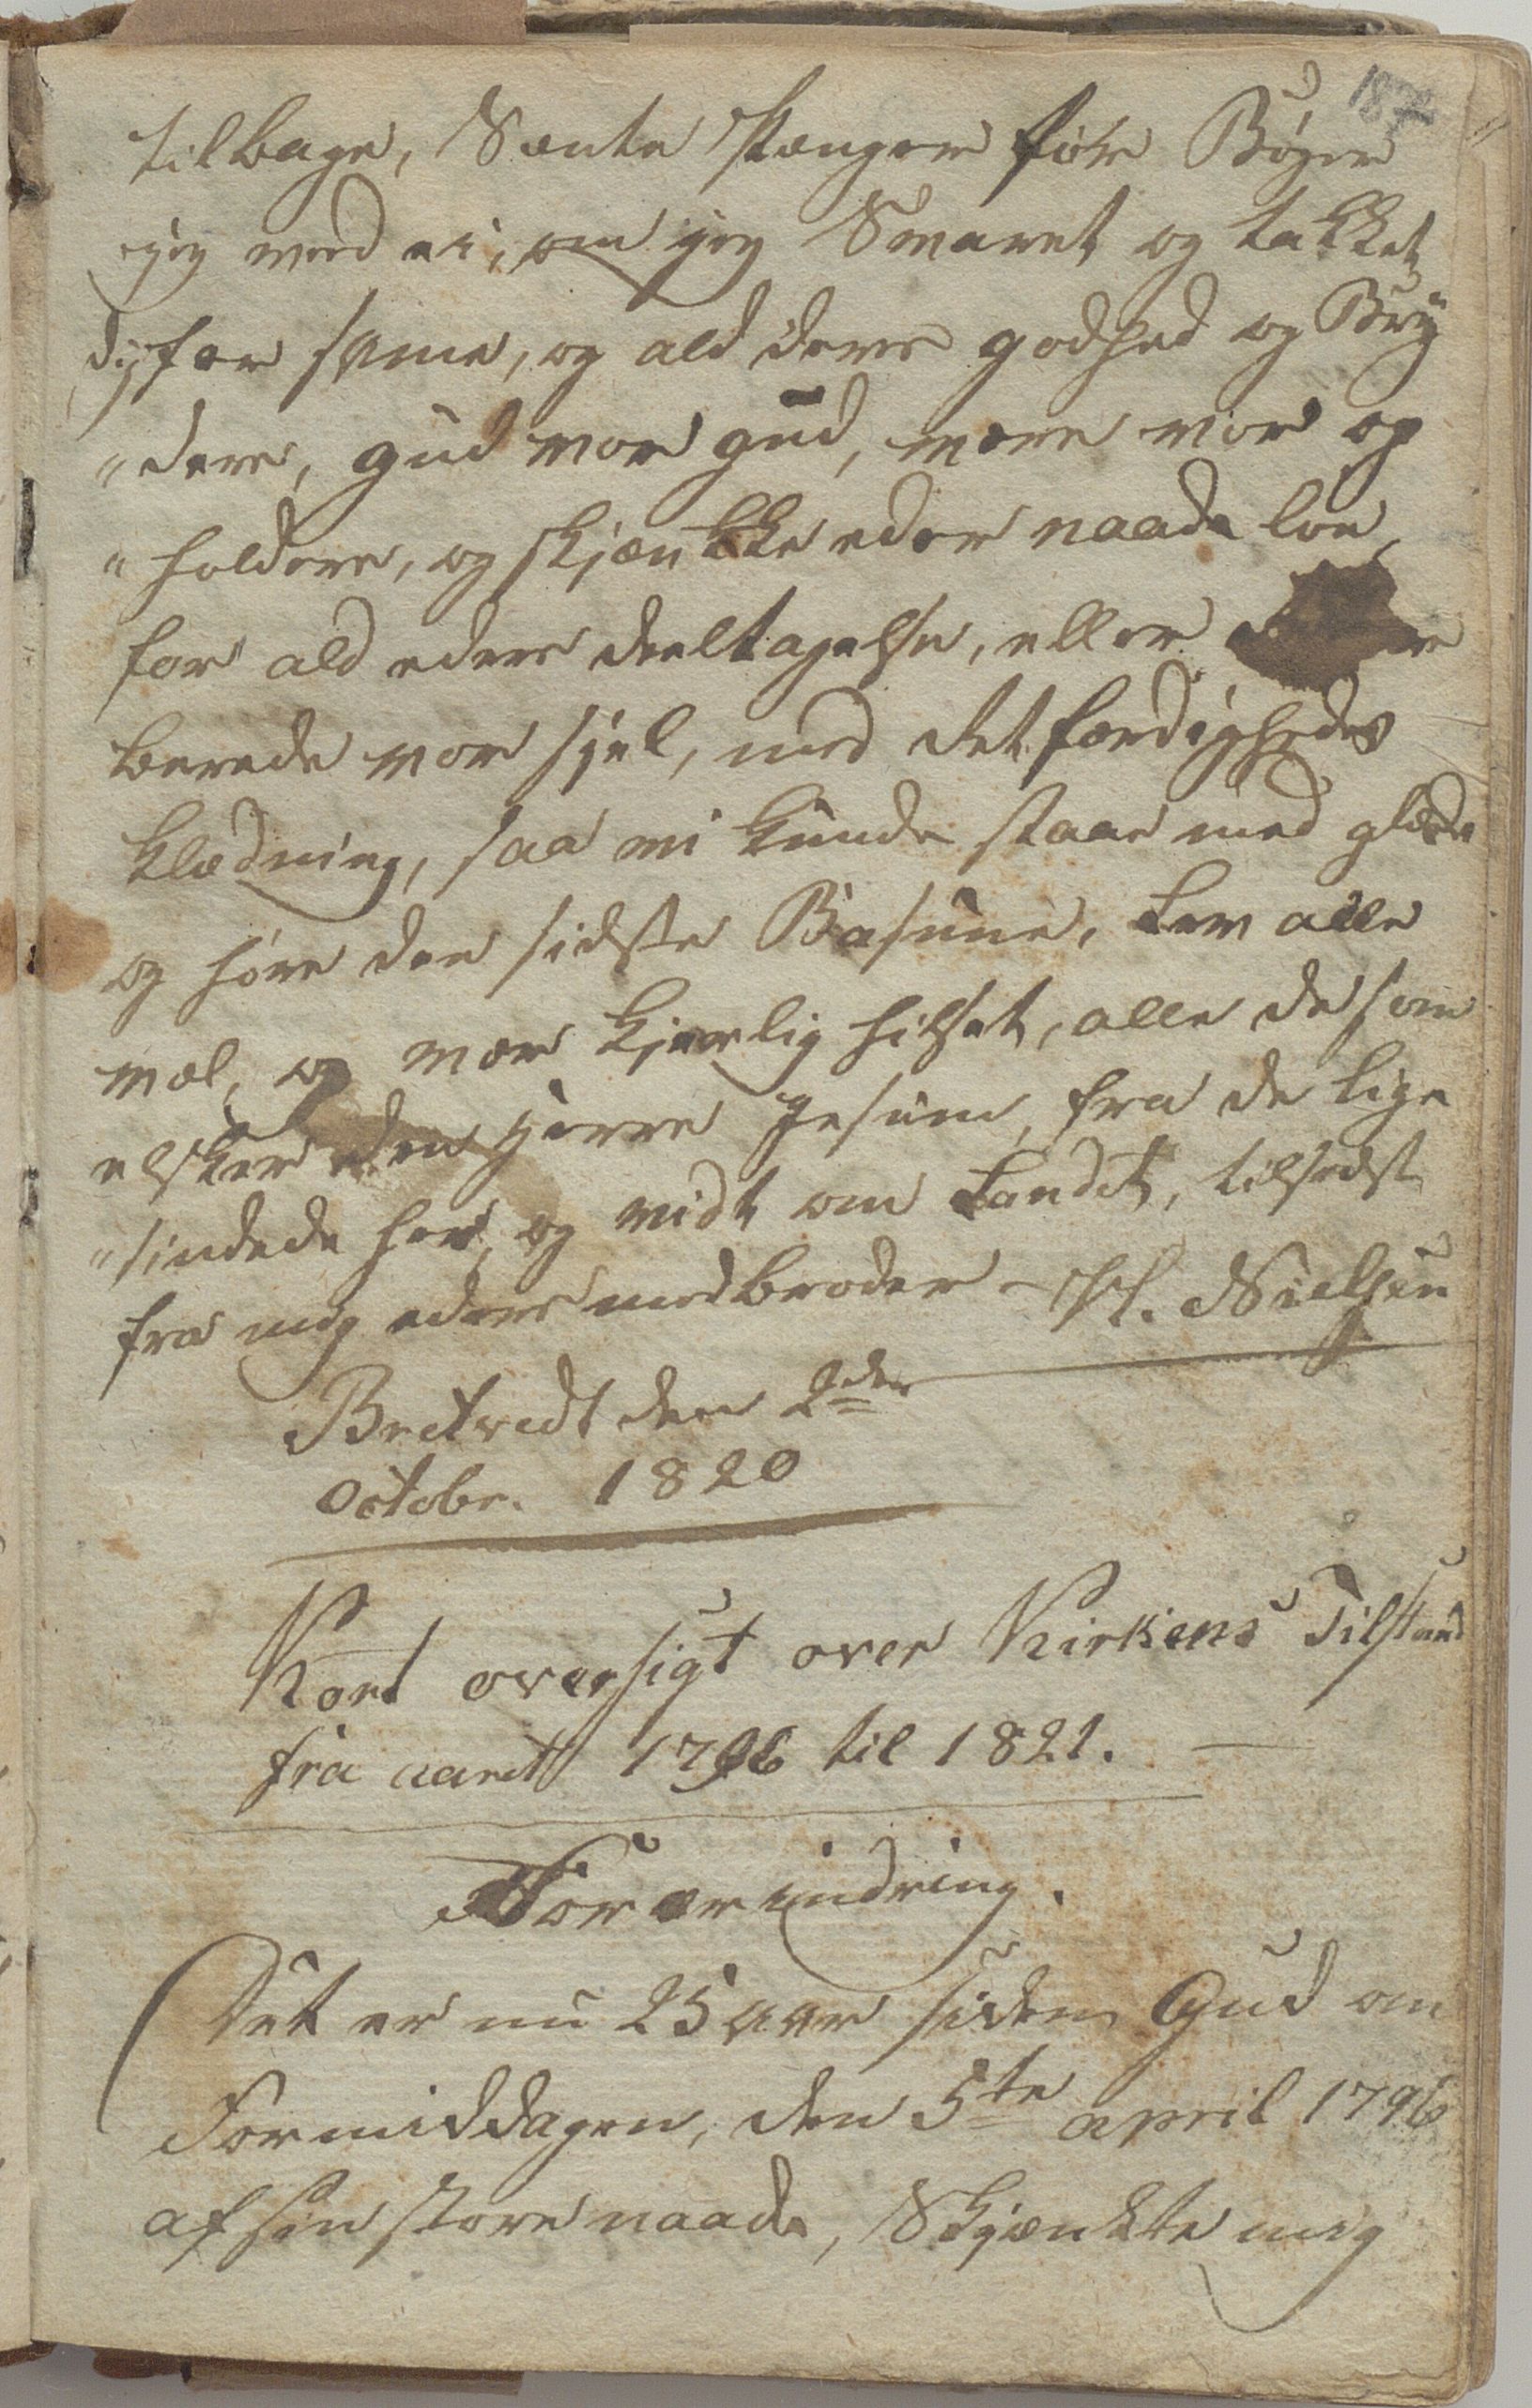 187
tilbage, Sente Penger for Bøger
jeg ved ei, om jeg Svaret og takket
dig for same, og ald ders godhed og Brÿ
"dere, gud vor gud, være vor op
"holdere, og skjænkke eder naade løn
for ald eders deeltagelse, eller
berede vor sjel, med Retfærdigheds
klædning, saa vi kunde staae med glæde
og høre den sidste Basune, Lev alle
vel, og vær kjerlig hilset, alle de som
elsker den Herre Jesum, fra de lige
"sindede her, og vidt om Landet, tilsidst
fra mig eders medbroder – H. Nielsen
Bretvedt den 2den
Octobr. 1820
Kort oversigt over Kirkens Tilstand
fra aaret 1796 til 1821.
Forerindring.
Det er nu 25 aar siden Gud om
Formiddagen, den 5te april 1796
af sin store naade, Skjænkte mig